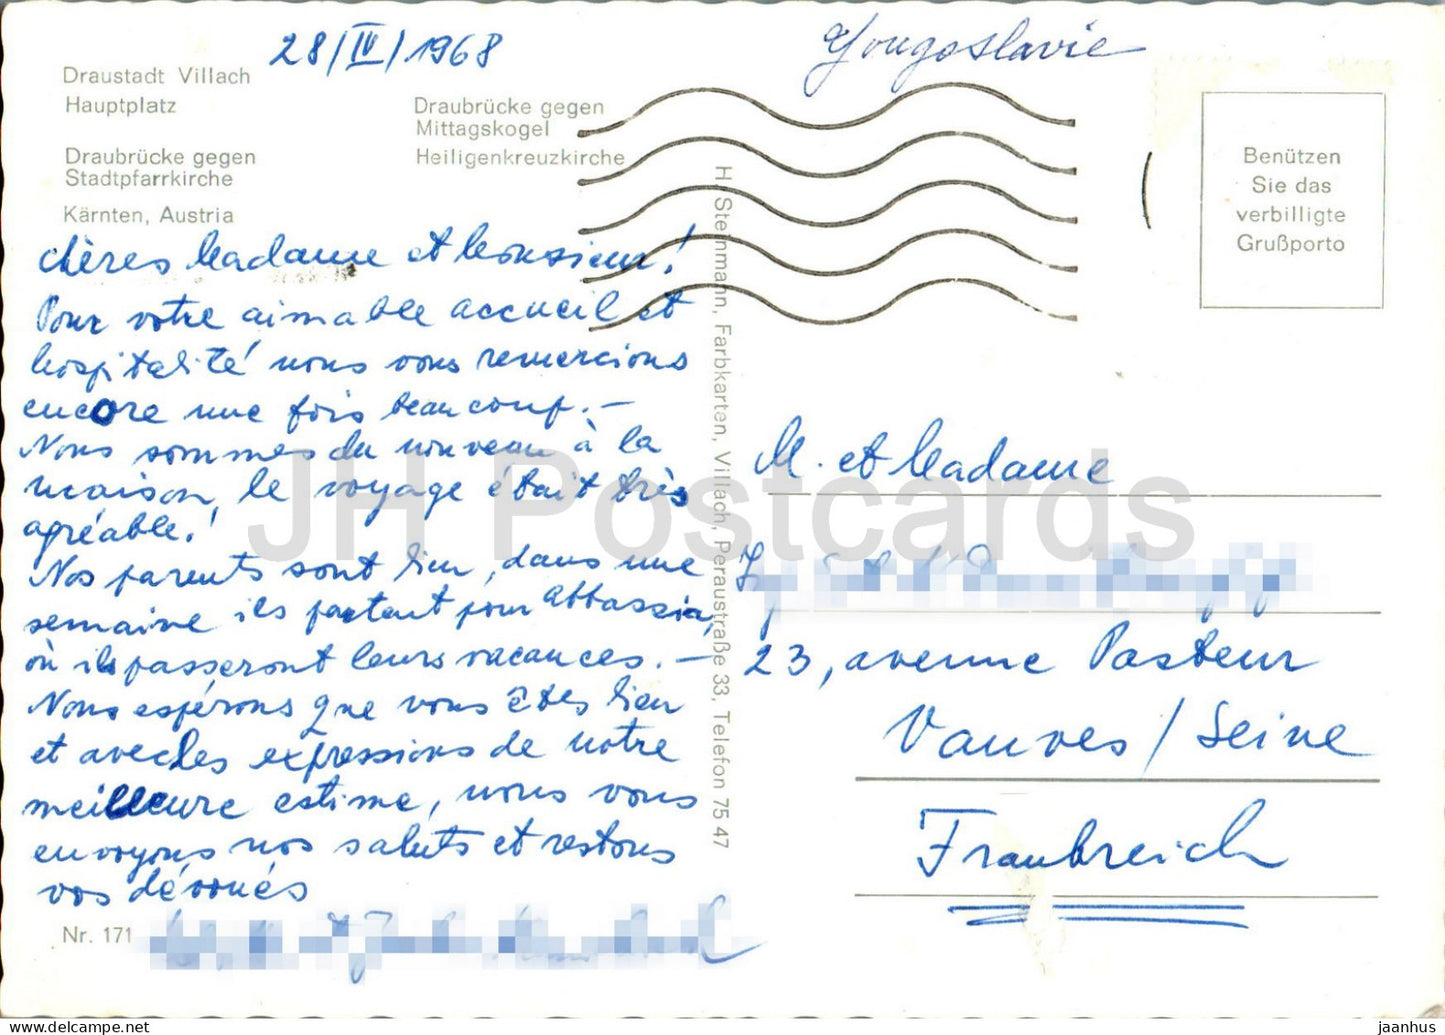 28/IV/1968
Yougoslavie
Draustadt Villach
Hauptplatz
Draubrücke gegen
Stadtpfarrkirche
Kärnten, Austria
Draubrücke gegen
Mittagskogel
Heiligenkreuzkirche
Benützen
Sie das
verbilligte
Grußporto
chères Madame et Monsieur!
Pour votre aimable accueil et
hospitalité nous vous remercions
encore une fois beaucoup. –
Nous sommes du nouveau à la
maison, le voyage était très
agréable!
Nos parents sont bien, dans une
semaine ils partent pour Abbassia,
où ils passeront leurs vacances. –
Nous espérons que vous êtes bien
et avec les expressions de notre
meilleure estime, nous vous
envoyons nos saluts et restons
vos dévoués
Nr. 171
H. Steinmann, Farbkarten, Villach, Peraustraße 33, Telefon 75 47
M. et Madame
23, avenue Pasteur
Vanves / Seine
Frankreich
JH Postcards
delcampe.net
jaanhus